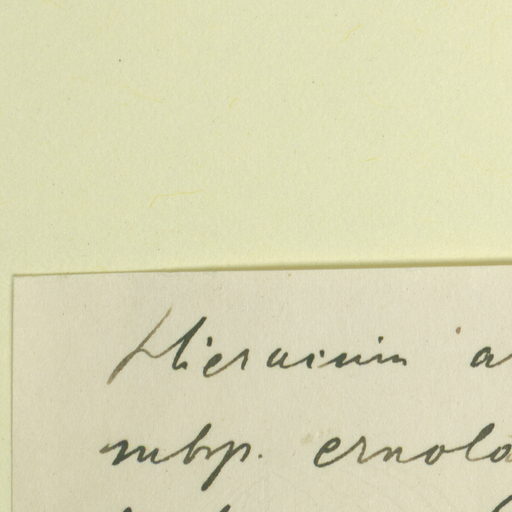 Hieracium a
subsp. ernola